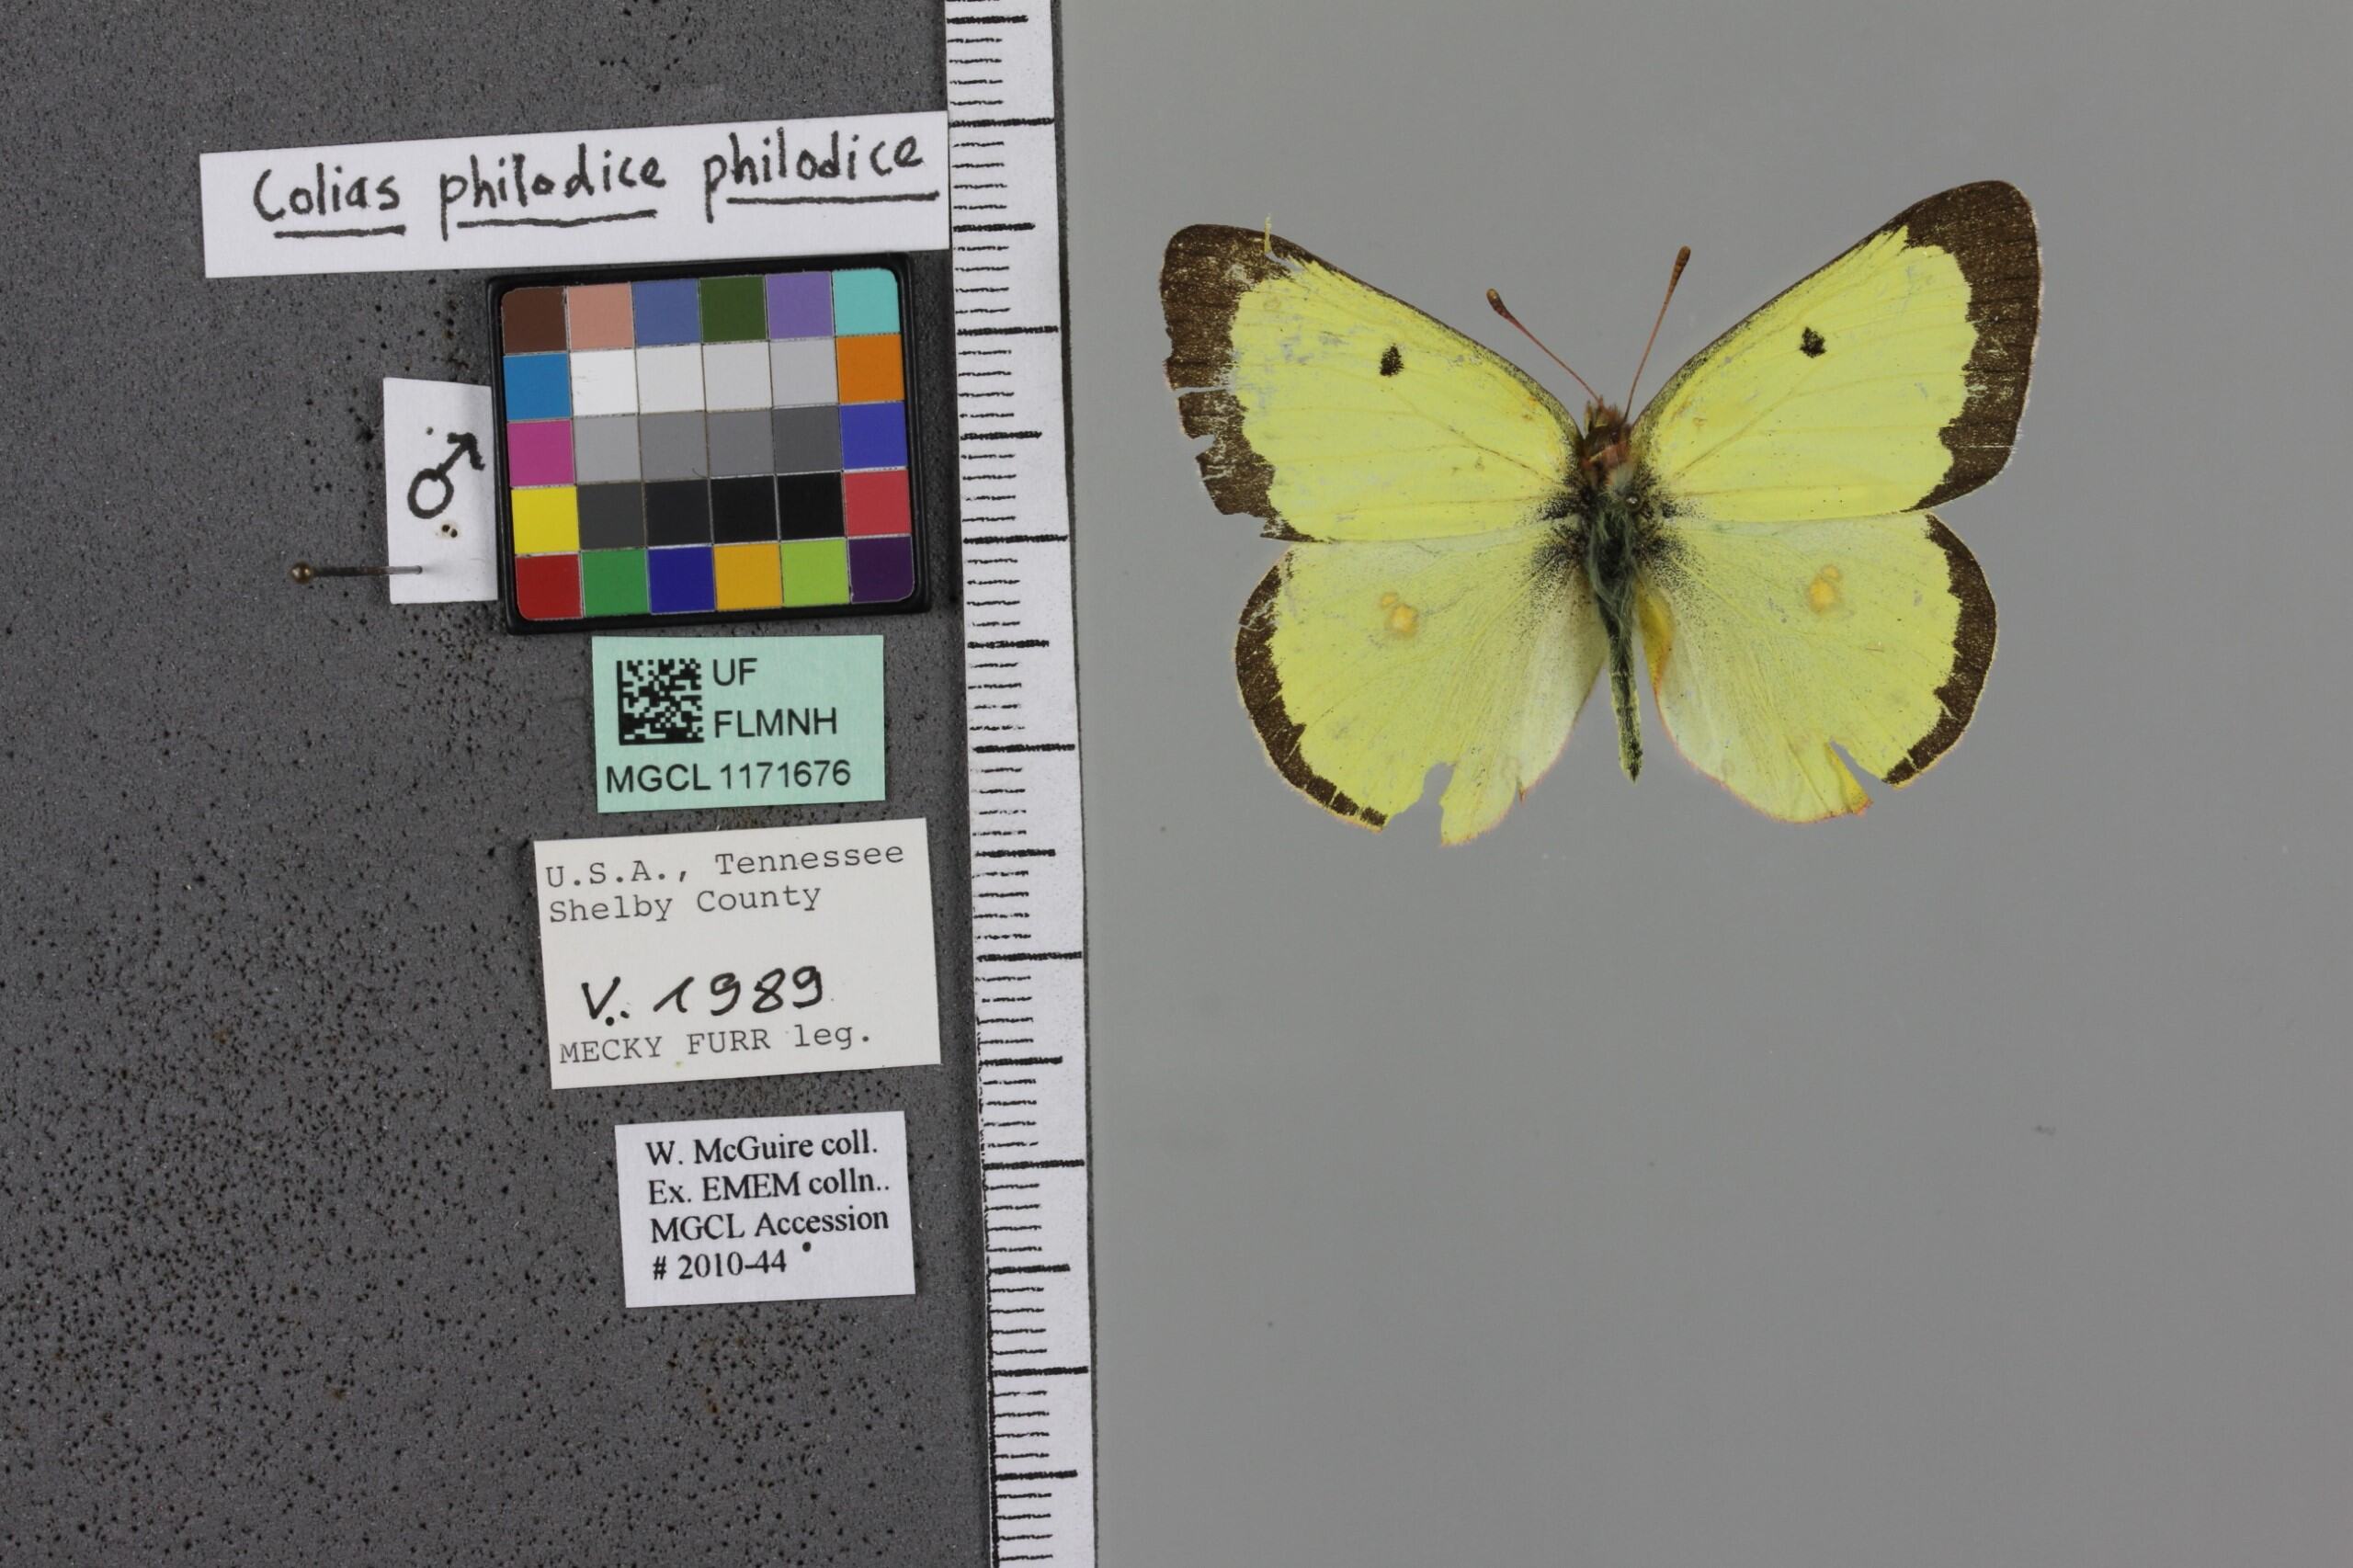 Colias philodice philodice
♂
UF
FLMNH
MGCL 1171676
U.S.A., Tennessee
Shelby County
V. 1989
MECKY FURR leg.
W. McGuire coll.
Ex. EMEM colln..
MGCL Accession
# 2010-44